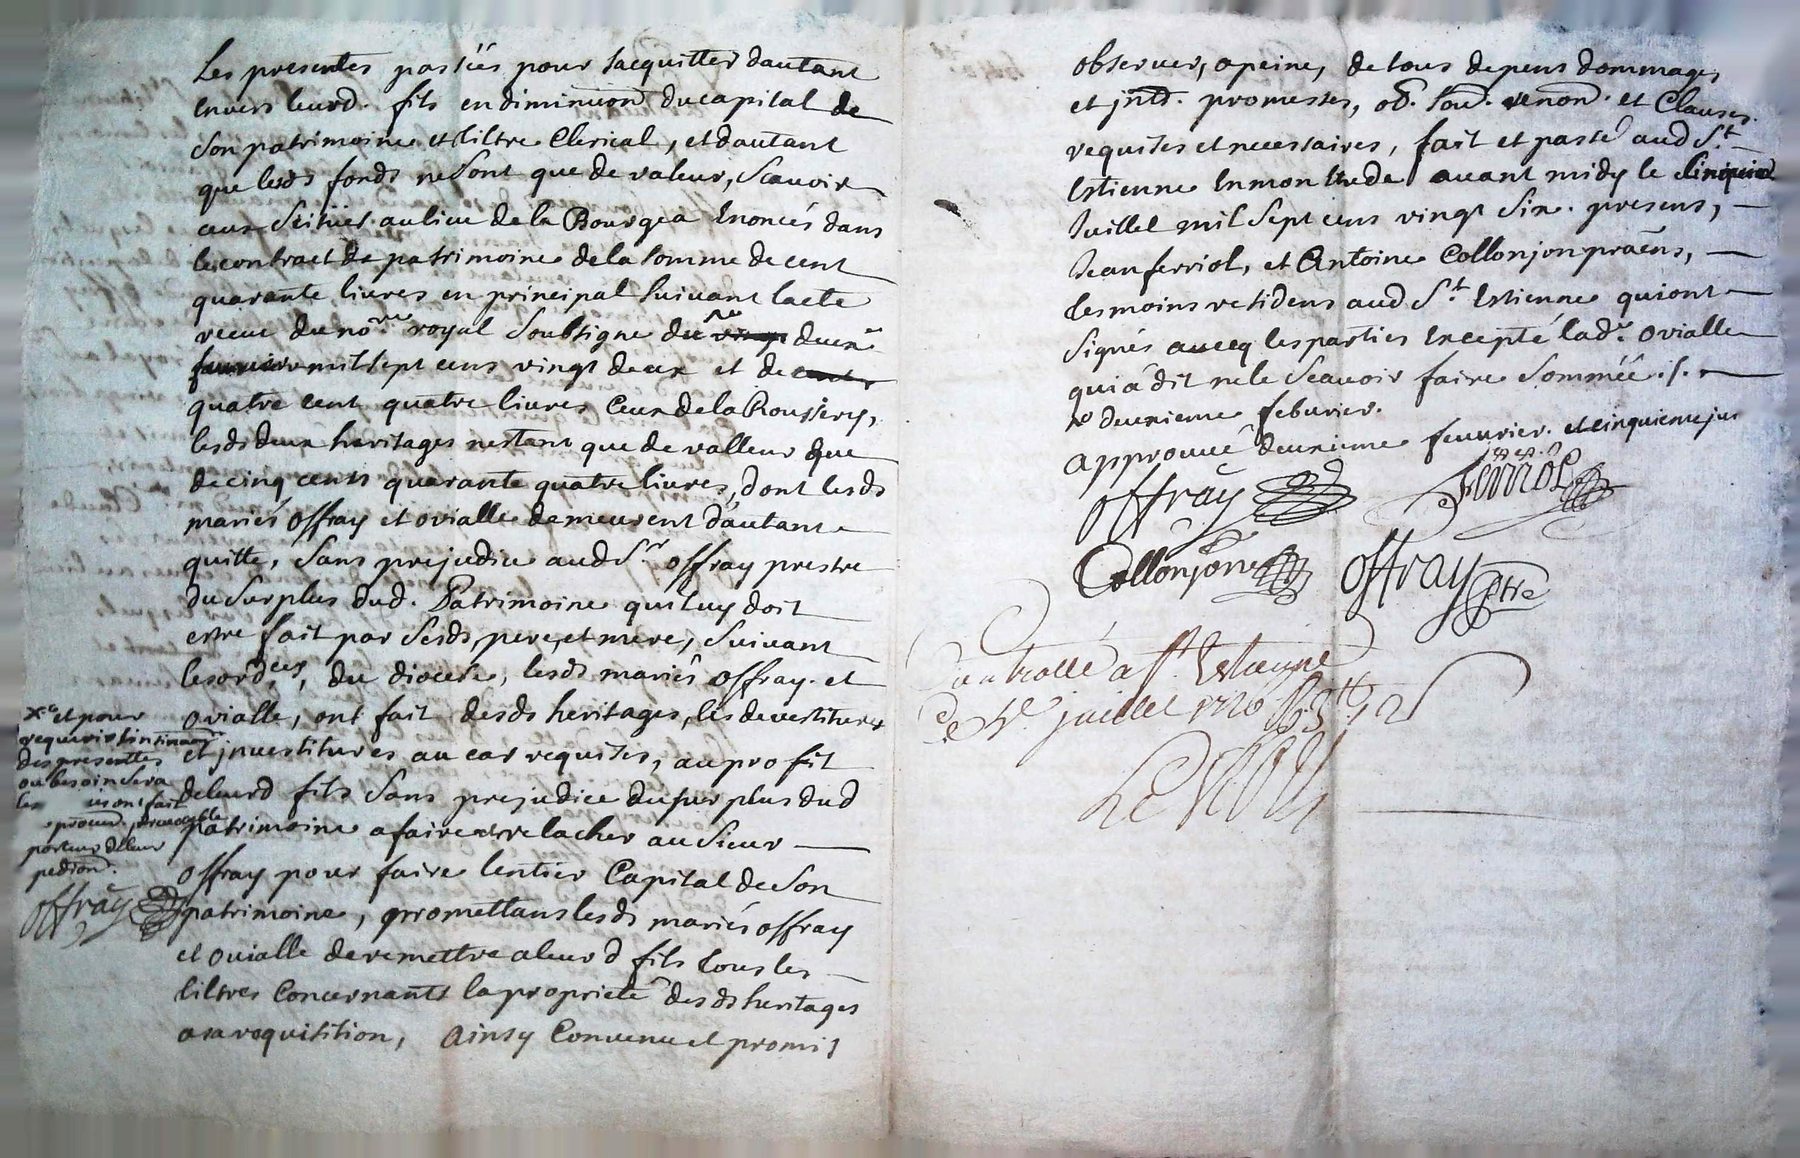 Les presentes passées pour sacquitter dautant
envers leurd. fils en diminuon du capital de
son patrimoine et tiltre Clerical, et dautant
que lesds fonds ne sont que de valeur, scauoir
ceux scitués au lieu de la Bourgea Enoncés dans
le contract de patrimoine de la somme de cent
quarante liures en principal suiuant lacte
receu du nore royal soubsigné du deuxe
feuurier mil sept cens vingt deux et de
quatre cent quatre liures Ceux de la Roussiery,
lesds deux heritages nestant que de valleur que
de cinq cents quarante quatre liures, dont lesds
mariés offray et ovialle demeurent d'autant
quitte, sans prejudice aud Sr offray prestre
du surplus dud. Patrimoine qui luy doit
estre fait par sesds, pere, et mere, suiuant
les ordces, du diocese, lesds mariés offray et
ovialle, ont fait desds heritages, les devestitures
et jnvestitures au cas requises, au profit
de leurd fils sans prejudice du surplus dud
patrimoine a faire et relacher au Sieur
offray pour faire lentier Capital de son
patrimoine, promettans lesds mariés offray
et ovialle de remettre a leurd fils tous les
tiltres Concernants la proprieté desds heritages
a sa requisition, Ainsy Convenu et promis
et pour
requerir linsinuaon
des presentes
ou besoin sera
les ont fait
procur.
porteur de leur
pedion.
offray
observer, a peine, de tous depens dommages
et jntd. promesses, ob. soum. renon. et Clauses
requises et necessaires, fait et passé aud St
Estienne En mon Etude auant midy le Cinquieme
Juillet mil sept cens vingt six. presens,
Jean ferriol, et Antoine Collonjon pratiens,
tesmoins residens aud St. Estienne qui ont
signés auecq les parties Excepté lade. ovialle
qui a dit ne le scauoir faire sommée ./.
deuxieme feburier.
approuué deuxieme feuurier. et cinquieme
offray
ferriol
Collonjon
offray ptre
Controllé a St Estienne
le juillet 1726